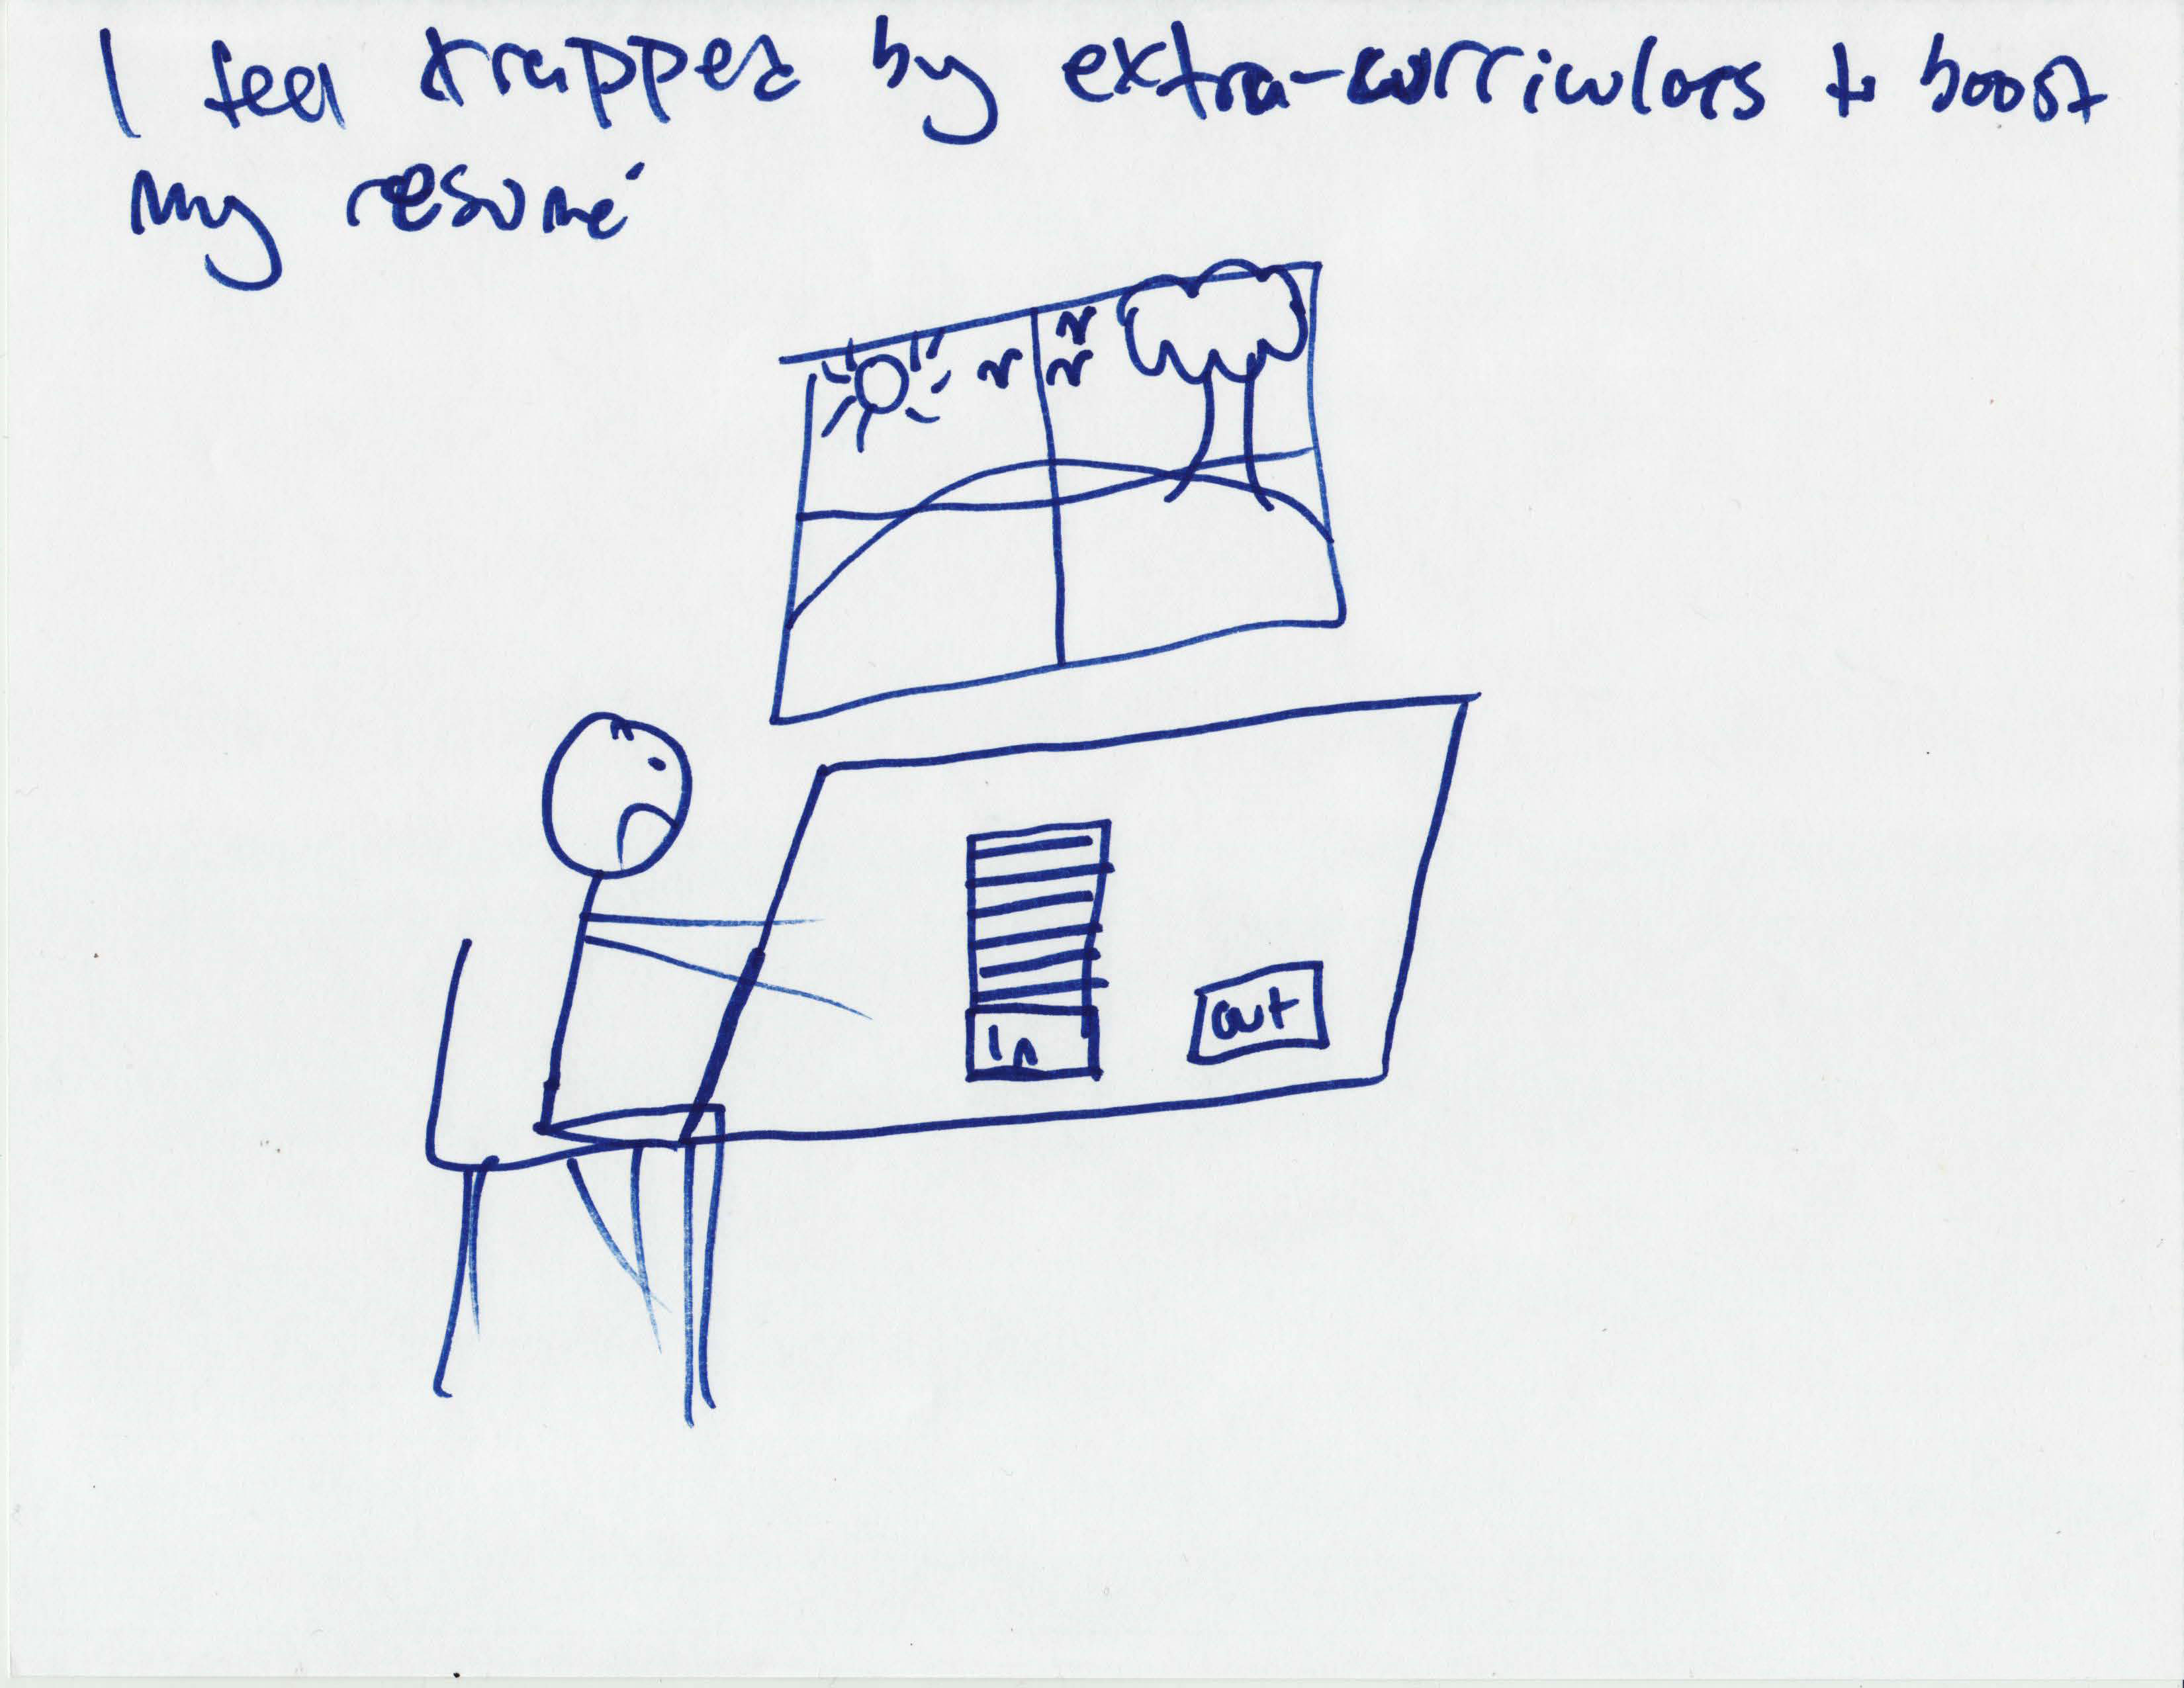 I feel trapped by extra-curriculars to boost
my resumé
In
out